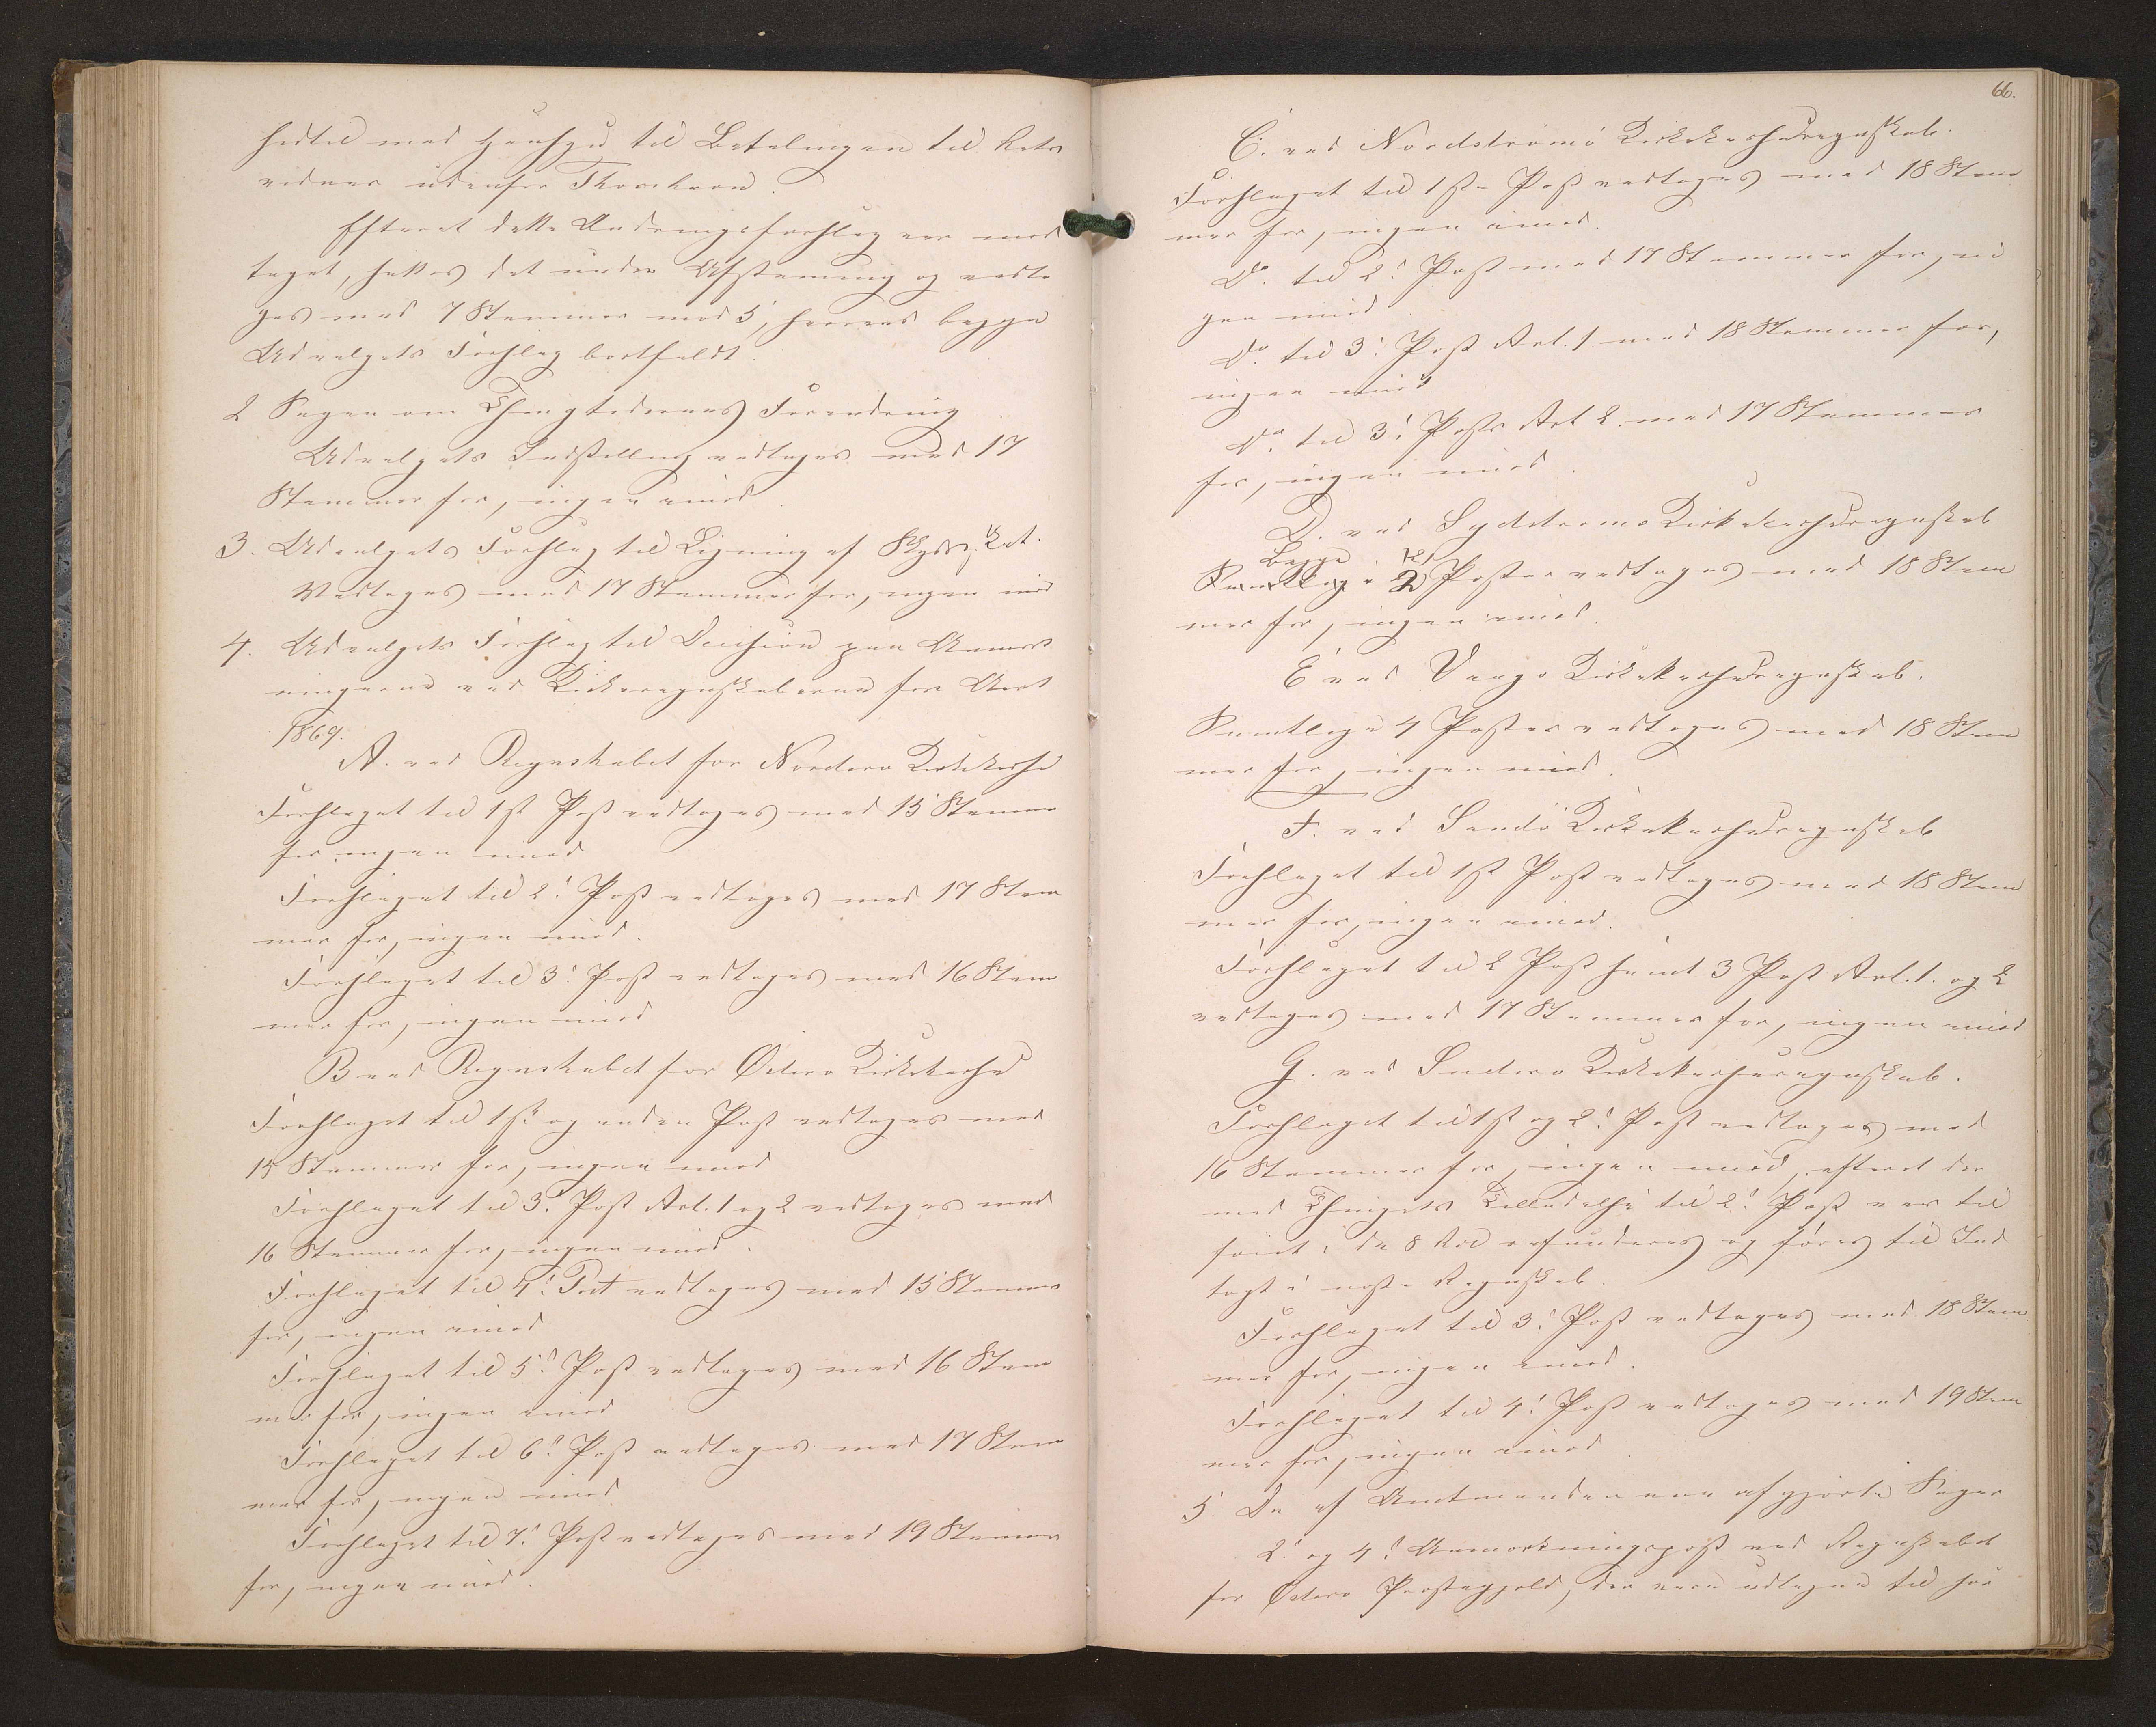 hidtil med Hensyn til Betalingen til Rets
vidner udenfor Thorshavn.
Efterat dette Ændringsforslag var mod
taget, sattes det under Afstemning og vedto
ges med 7 Stemmer mod 5, hvorved begge
Udvalgets Forslag bortfaldt.
2 Sagen om Thingstedernes Forandring
Udvalgets Indstilling vedtoges med 17
Stemmer for, ingen imod.
3. Udvalgets Forslag til Ligning af Skydsskat.
Vedtoges med 17 Stemmer for, ingen imod
4. Udvalgets Forslag til Decision paa Anmærk
ningerne ved Kirkeregnskaberne for Aaret
1869.
A. ved Regnskabet for Norderø Kirkekasse
Forslaget til 1st Post vedtoges med 15 Stemmer
for ingen imod
Forslaget til 2d Post vedtoges med 17 Stem
mer for, ingen imod.
Forslaget til 3d Post vedtoges med 16 Stem
mer for, ingen imod
B ved Regnskabet for Østerø Kirkekasse
Forslaget til 1ste og anden Post vedtoges med
15 Stemmer for, ingen imod
Forslaget til 3d Post Art. 1 og 2 vedtoges med
16 Stemmer for, ingen imod.
Forslaget til 4d Post vedtoges med 15 Stemmer
for, ingen imod
Forslaget til 5d Post vedtoges med 16 Stem
mer for, ingen imod
Forslaget til 6d Post vedtoges med 17 Stem
mer for, ingen imod
Forslaget til 7d Post vedtoges med 19 Stemmer
for, ingen imod.
66.
C. ved Nordstrømø Kirkekasseregnskab.
Forslaget til 1ste Post vedtoges med 18 Stem
mer for, ingen imod.
Do. til 2d Post med 17 Stemmer for, in
gen imod
Do. til 3d Post Art. 1 med 18 Stemmer for,
ingen imod
Do. til 3d Posts Art 2. med 17 Stemmer
for, ingen imod.
D. ved Sydstrømø Kirkekasseregnskab
Begge
Samtlige 2 Poster vedtoges med 18 Stem
mer for, ingen imod.
E ved Vaagø Kirkekasseregnskab.
Samtlige 4 Poster vedtoges med 18 Stem
mer for, ingen imod.
F. ved Sandø Kirkekasseregnskab
Forslaget til 1st Post vedtoges med 18 Stem
mer for, ingen imod.
Forslaget til 2 Post samt 3 Post Art. 1. og 2
vedtoges med 17 Stemmer for, ingen imod
G. ved Suderø Kirkekasseregnskab.
Forslaget til 1st og 2d Post vedtoges med
16 Stemmer for, ingen imod, efterat der
med Thingets Tilladelse til 2d Post var til
føiet: de 8 Rd refunderes og føres til Ind
tægt i næste Regnskab.
Forslaget til 3d Post vedtoges med 18 Stem
mer for, ingen imod.
Forslaget til 4d Post vedtoges med 19 Stem
mer for, ingen imod.
5. De af Amtmanden ene afgjorte Sager
2d og 4d Anmærkningspost ved Regnskabet
for Østerø Præstegjeld, der vare udtagne til sær